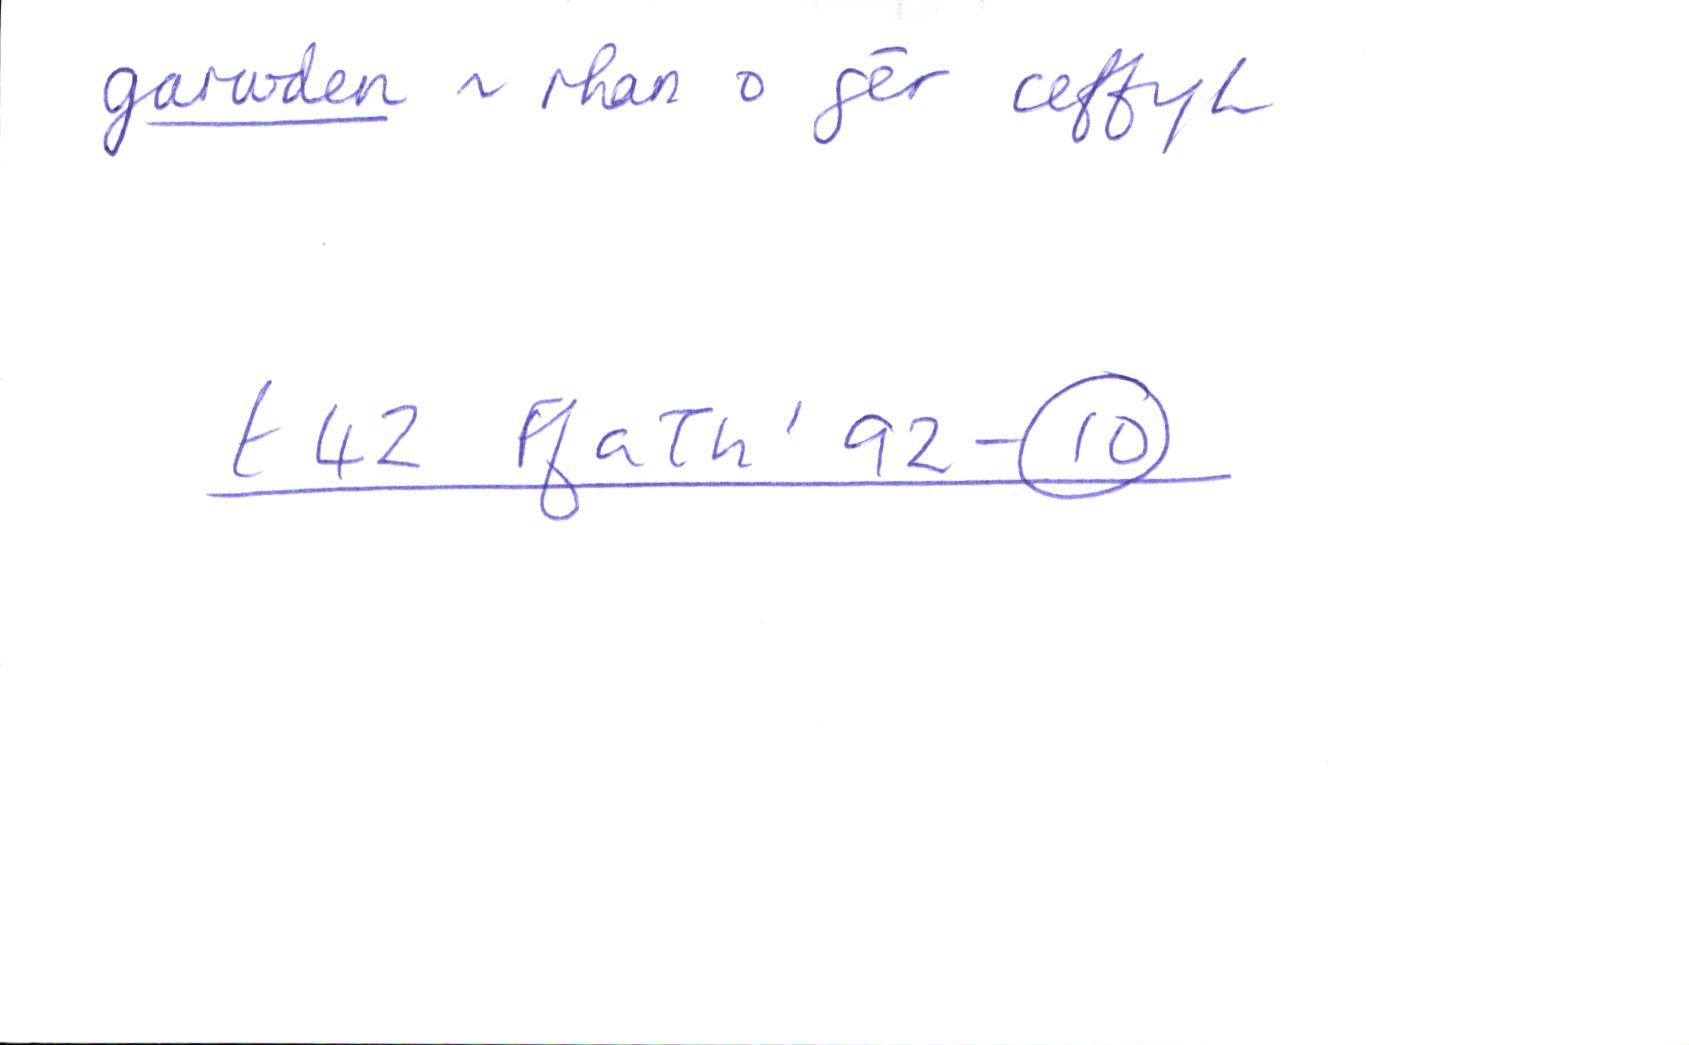 garwden ~ rhan o gêr ceffyl
t 42 Ffath '92 - 10